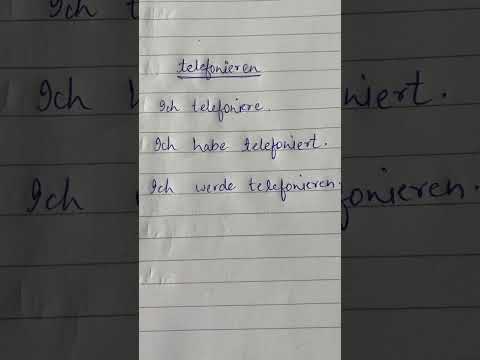 telefonieren
Ich telefoniere.
Ich habe telefoniert.
Ich werde telefonieren.